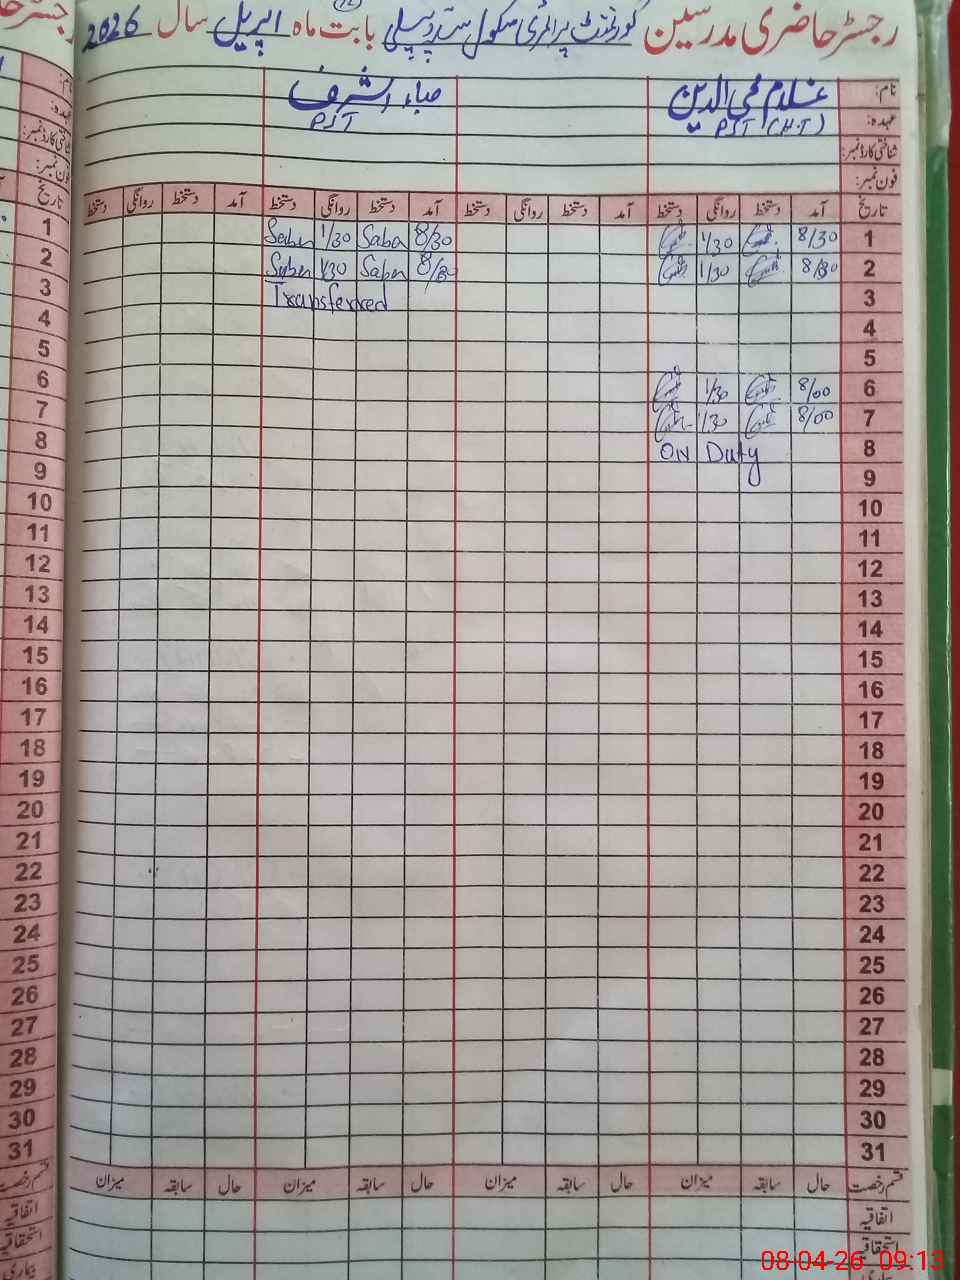 رجسٹر حاضری مدرسین گورنمنٹ پرائمری سکول بابت ماہ اپریل سال 2026
نام: غلام محی الدین صباء اشرف
عہدہ: PST (H.T) PST
شناختی کارڈ نمبر:
فون نمبر:
تاریخ آمد دستخط روانگی دستخط آمد دستخط روانگی دستخط آمد دستخط روانگی دستخط آمد دستخط روانگی دستخط تاریخ
1 8/30 1/30 8/30 Saba 1/30 Saba 1
2 8/30 1/30 8/30 Saba 1/30 Saba 2
3 Transferred 3
4 4
5 5
6 8/00 1/30 6
7 8/00 1/30 7
8 On Duty 8
9 9
10 10
11 11
12 12
13 13
14 14
15 15
16 16
17 17
18 18
19 19
20 20
21 21
22 22
23 23
24 24
25 25
26 26
27 27
28 28
29 29
30 30
31 31
قسم رخصت حال سابقہ میزان حال سابقہ میزان حال سابقہ میزان حال سابقہ میزان قسم رخصت
اتفاقیہ اتفاقیہ
استحقاقیہ استحقاقیہ
بیماری
08-04-26 09:13